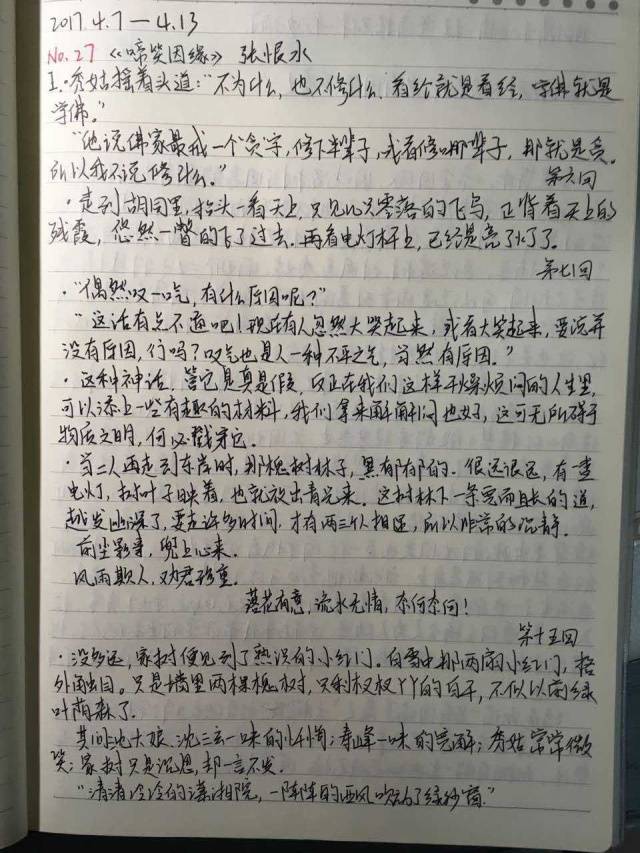 2017.4.7—4.13
No.27 《啼笑因缘》 张恨水
I.·秀姑摇着头道:“不为什么,也不修什么,看经就是看经,学佛就是
学佛。”
“他说佛家最戒一个贪字,修下半辈子,或者修哪辈子,那就是贪。
所以我不说修什么。”
第六回
·走到胡同里,抬头一看天上,只见几只零落的飞鸟,正背着天上的
残霞,悠然一瞥的飞了过去。再看电灯杆上,已经是亮了灯了。
第七回
·“偶然叹一口气,有什么原因呢?”
“这话有点不通吧!现在有人忽然大哭起来,或者大笑起来,要说并
没有原因,行吗?叹气也是人一种不平之气,当然有原因。”
·这种神话,管它是真是假,反正在我们这样干燥烦闷的人生里,
可以添上一些有趣的材料,我们拿来解解闷也好,这可无所碍于
物质文明,何必戳穿它。
·当二人再走到东岸时,那槐树林子,黑郁郁的。很远很远,有一盏
电灯,树叶子映着,也就放出青光来。这树林下一条宽而且长的道,
越发幽深了,要走许多时间,才有两三个人相遇,所以非常的沉静。
前尘影事,兜上心来。
风雨欺人,劝君珍重。
落花有意,流水无情,奈何奈何!
第十五回
·没多远,家树便见到了熟识的小红门。白雪中那两扇小红门,格
外触目。只是墙里两棵槐树,只剩杈杈丫丫的白干,不似以前绿
叶荫森了。
其间沈大娘、沈三玄一味的;寿峰一味的谅解;秀姑常常微
笑;家树只是沉思,却一言不发。
“清清冷冷的潇湘院,一阵阵的西风吹动了绿纱窗。”